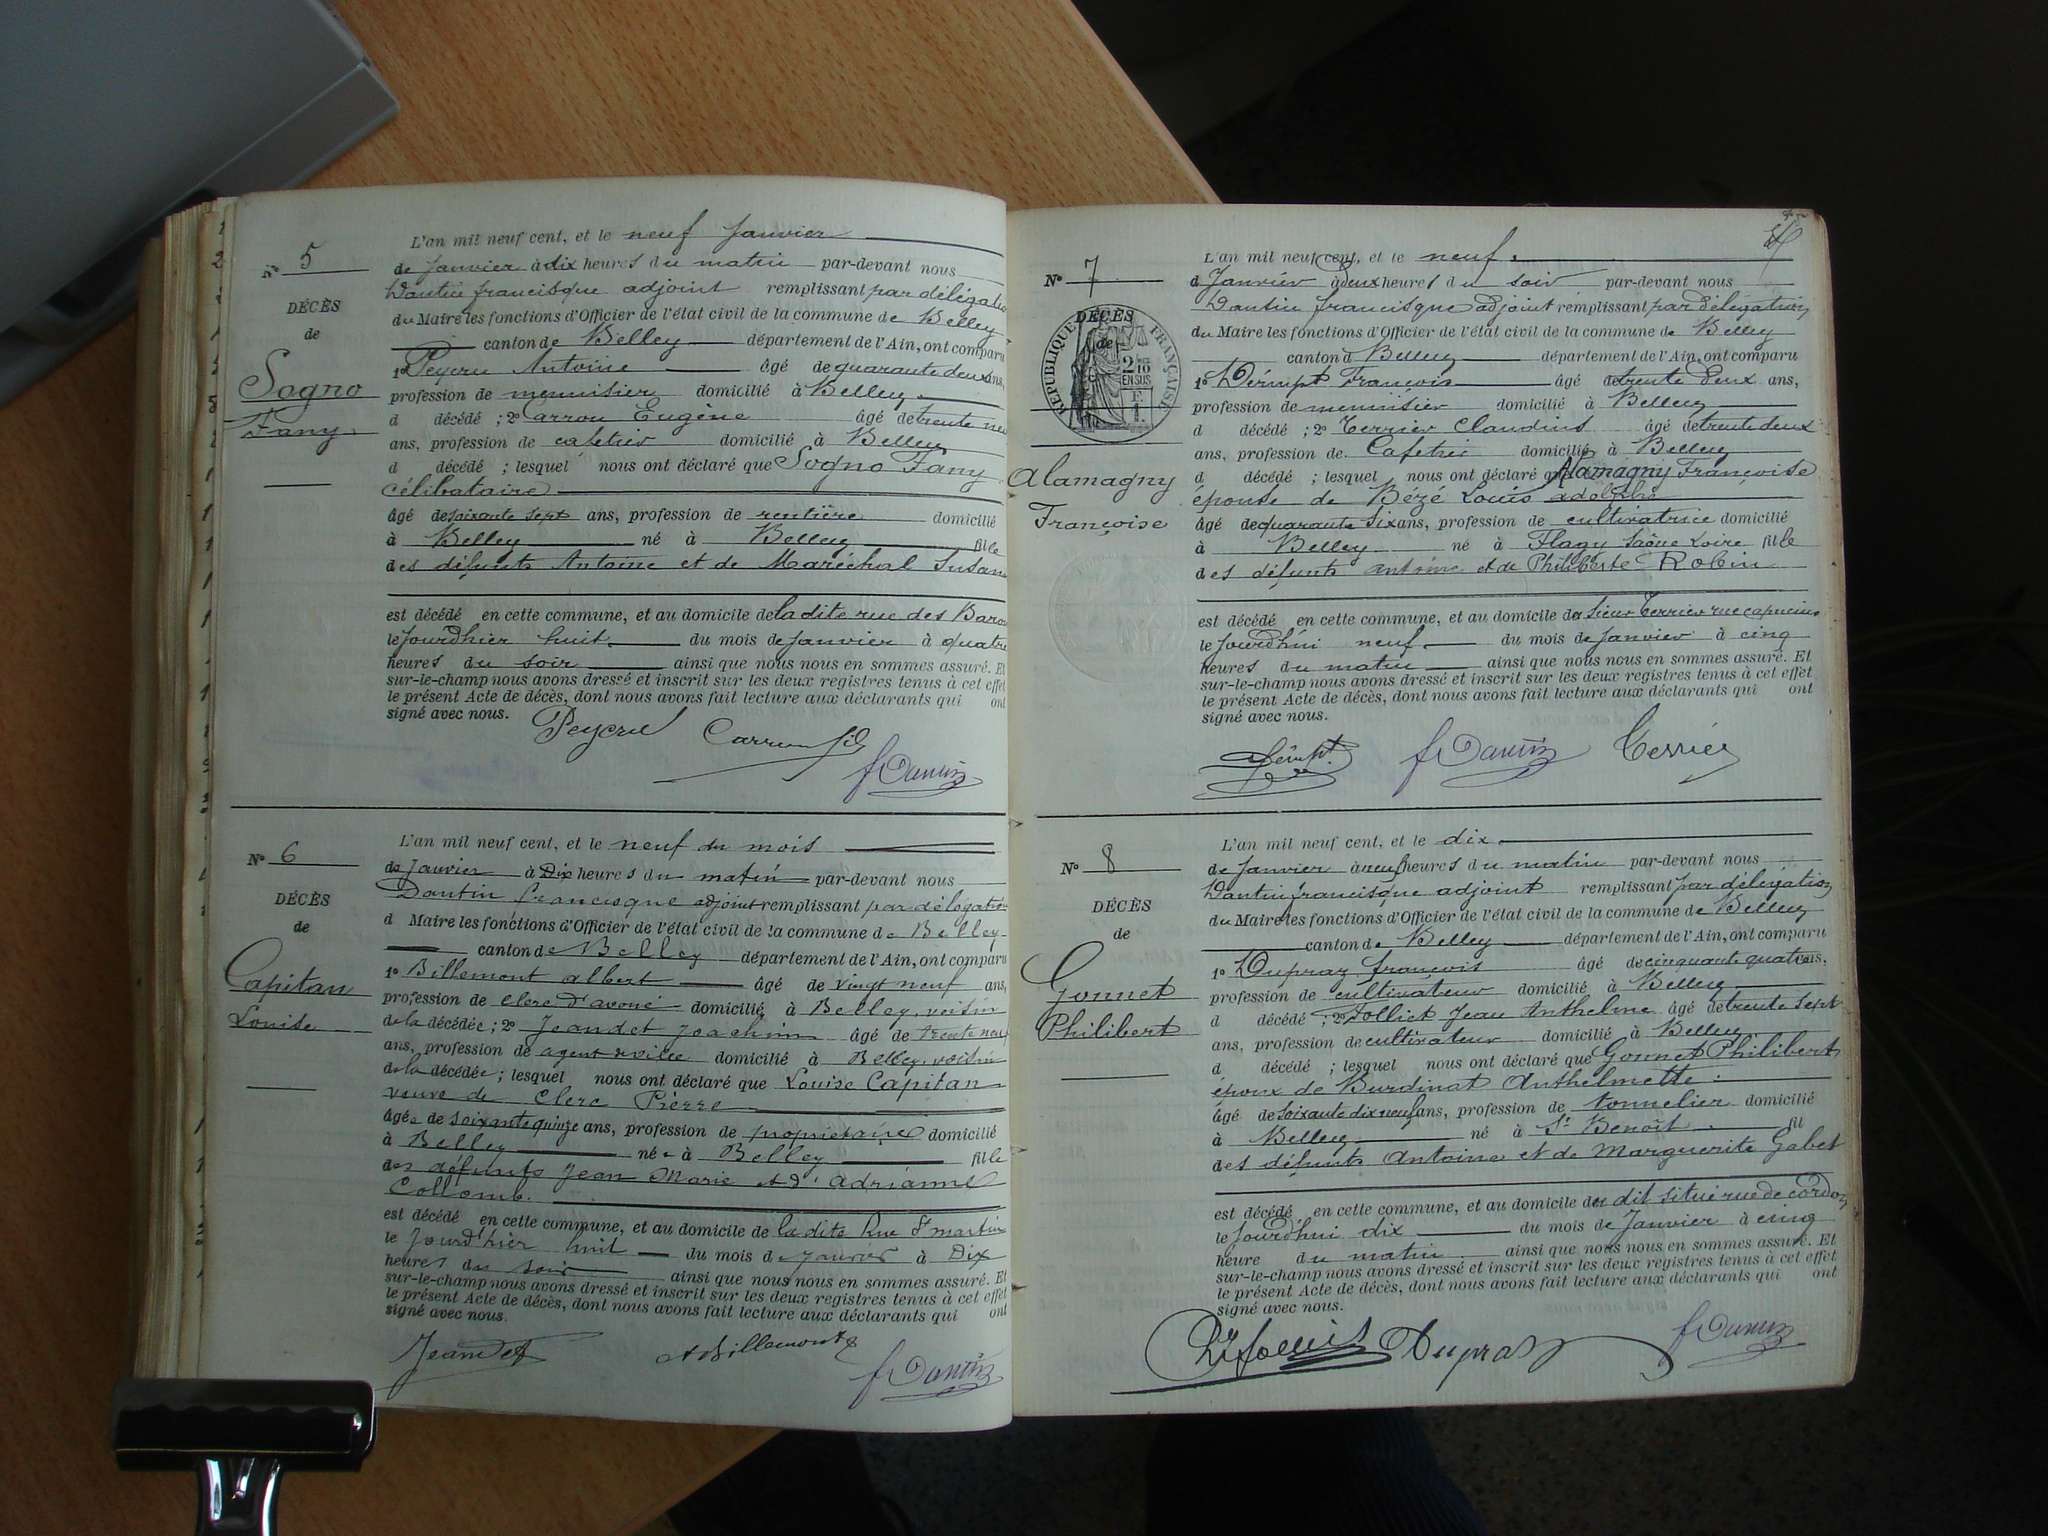 N° 5
DÉCÈS
de
Sogno
Fany
L'an mil neuf cent, et le neuf Janvier
de Janvier à dix heures du matin par-devant nous
Dantin francisque adjoint remplissant par délégation
du Maire les fonctions d'Officier de l'état civil de la commune de Belley
canton de Belley département de l'Ain, ont comparu
1° Peycru Antoine âgé de quarante deux ans,
profession de menuisier domicilié à Belley
d décédé ; 2° Carrou Eugène âgé de trente neuf
ans, profession de cafetier domicilié à Belley
d décédé ; lesquel nous ont déclaré que Sogno Fany
célibataire
âgé de soixante sept ans, profession de rentière domicilié
à Belley né à Belley fille
des défunts Antoine et de Maréchal Susan
est décédé en cette commune, et au domicile de ladite rue des Baro
le jourdhier huit du mois de Janvier à quatre
heures du soir ainsi que nous nous en sommes assuré. Et
sur-le-champ nous avons dressé et inscrit sur les deux registres tenus à cet effet
le présent Acte de décès, dont nous avons fait lecture aux déclarants qui ont
signé avec nous.
Peycru Carrou fils
f Dantin
N° 6
DÉCÈS
de
Capitan
Louise
L'an mil neuf cent, et le neuf du mois
de Janvier à Dix heures du matin par-devant nous
Dantin francisque adjoint remplissant par délégation
d Maire les fonctions d'Officier de l'état civil de la commune de Belley
canton de Belley département de l'Ain, ont comparu
1° Billemont albert âgé de vingt neuf ans,
profession de clerc d'avoué domicilié à Belley, voisin
de la décédée ; 2° Jeandet Joachim âgé de trente neuf
ans, profession de agent de ville domicilié à Belley, voisin
de la décédée ; lesquel nous ont déclaré que Louise Capitan
veuve de Clerc Pierre
âgée de soixante quinze ans, profession de propriétaire domicilié
à Belley née à Belley fille
des défunts Jean Marie et d'Adrianne
Collomb.
est décédé en cette commune, et au domicile de ladite Rue St martin
le Jourd'hier huit du mois de janvier à Dix
heures du soir ainsi que nous nous en sommes assuré. Et
sur-le-champ nous avons dressé et inscrit sur les deux registres tenus à cet effet
le présent Acte de décès, dont nous avons fait lecture aux déclarants qui ont
signé avec nous.
Jeandet A Billemont
f Dantin
N° 7
DÉCÈS
de
RÉPUBLIQUE FRANÇAISE
2/10
EN SUS
Alamagny
Françoise
L'an mil neuf cent, et le neuf
d Janvier à deux heures du soir par-devant nous
Dantin francisque adjoint remplissant par délégation
du Maire les fonctions d'Officier de l'état civil de la commune de Belley
canton d Belley département de l'Ain, ont comparu
1° Démpt François âgé de trente deux ans,
profession de menuisier domicilié à Belley
d décédé ; 2° Terrier Claudius âgé de trente deux
ans, profession de Cafetier domicilié à Belley
d décédé ; lesquel nous ont déclaré que Alamagny Françoise
épouse de Bézé Louis adolphe
âgé de quarante six ans, profession de cultivatrice domicilié
à Belley né à Flagy Saône Loire fille
des défunts antoine et de Philiberte Robin
est décédé en cette commune, et au domicile du sieur Terrier rue capucins
le jourd'hui neuf du mois de Janvier à cinq
heures du matin ainsi que nous nous en sommes assuré. Et
sur-le-champ nous avons dressé et inscrit sur les deux registres tenus à cet effet
le présent Acte de décès, dont nous avons fait lecture aux déclarants qui ont
signé avec nous.
Démpt f Dantin Terrier
N° 8
DÉCÈS
de
Gonnet
Philibert
L'an mil neuf cent, et le dix
de Janvier à neuf heures du matin par-devant nous
Dantin francisque adjoint remplissant par délégation
du Maire les fonctions d'Officier de l'état civil de la commune de Belley
canton de Belley département de l'Ain, ont comparu
1° Dupraz françois âgé de cinquante quatre ans,
profession de cultivateur domicilié à Belley
d décédé ; 2° Folliet Jean Anthelme âgé de trente sept
ans, profession de cultivateur domicilié à Belley
d décédé ; lesquel nous ont déclaré que Gonnet Philibert
époux de Burdinat Anthelmette
âgé de soixante dix neuf ans, profession de tonnelier domicilié
à Belley né à St Benoit fil
des défunts Antoine et de Marguerite Gabet
est décédé en cette commune, et au domicile du dit situé rue de cordon
le jourd'hui dix du mois de Janvier à cinq
heure du matin ainsi que nous nous en sommes assuré. Et
sur-le-champ nous avons dressé et inscrit sur les deux registres tenus à cet effet
le présent Acte de décès, dont nous avons fait lecture aux déclarants qui ont
signé avec nous.
Dupraz f Dantin